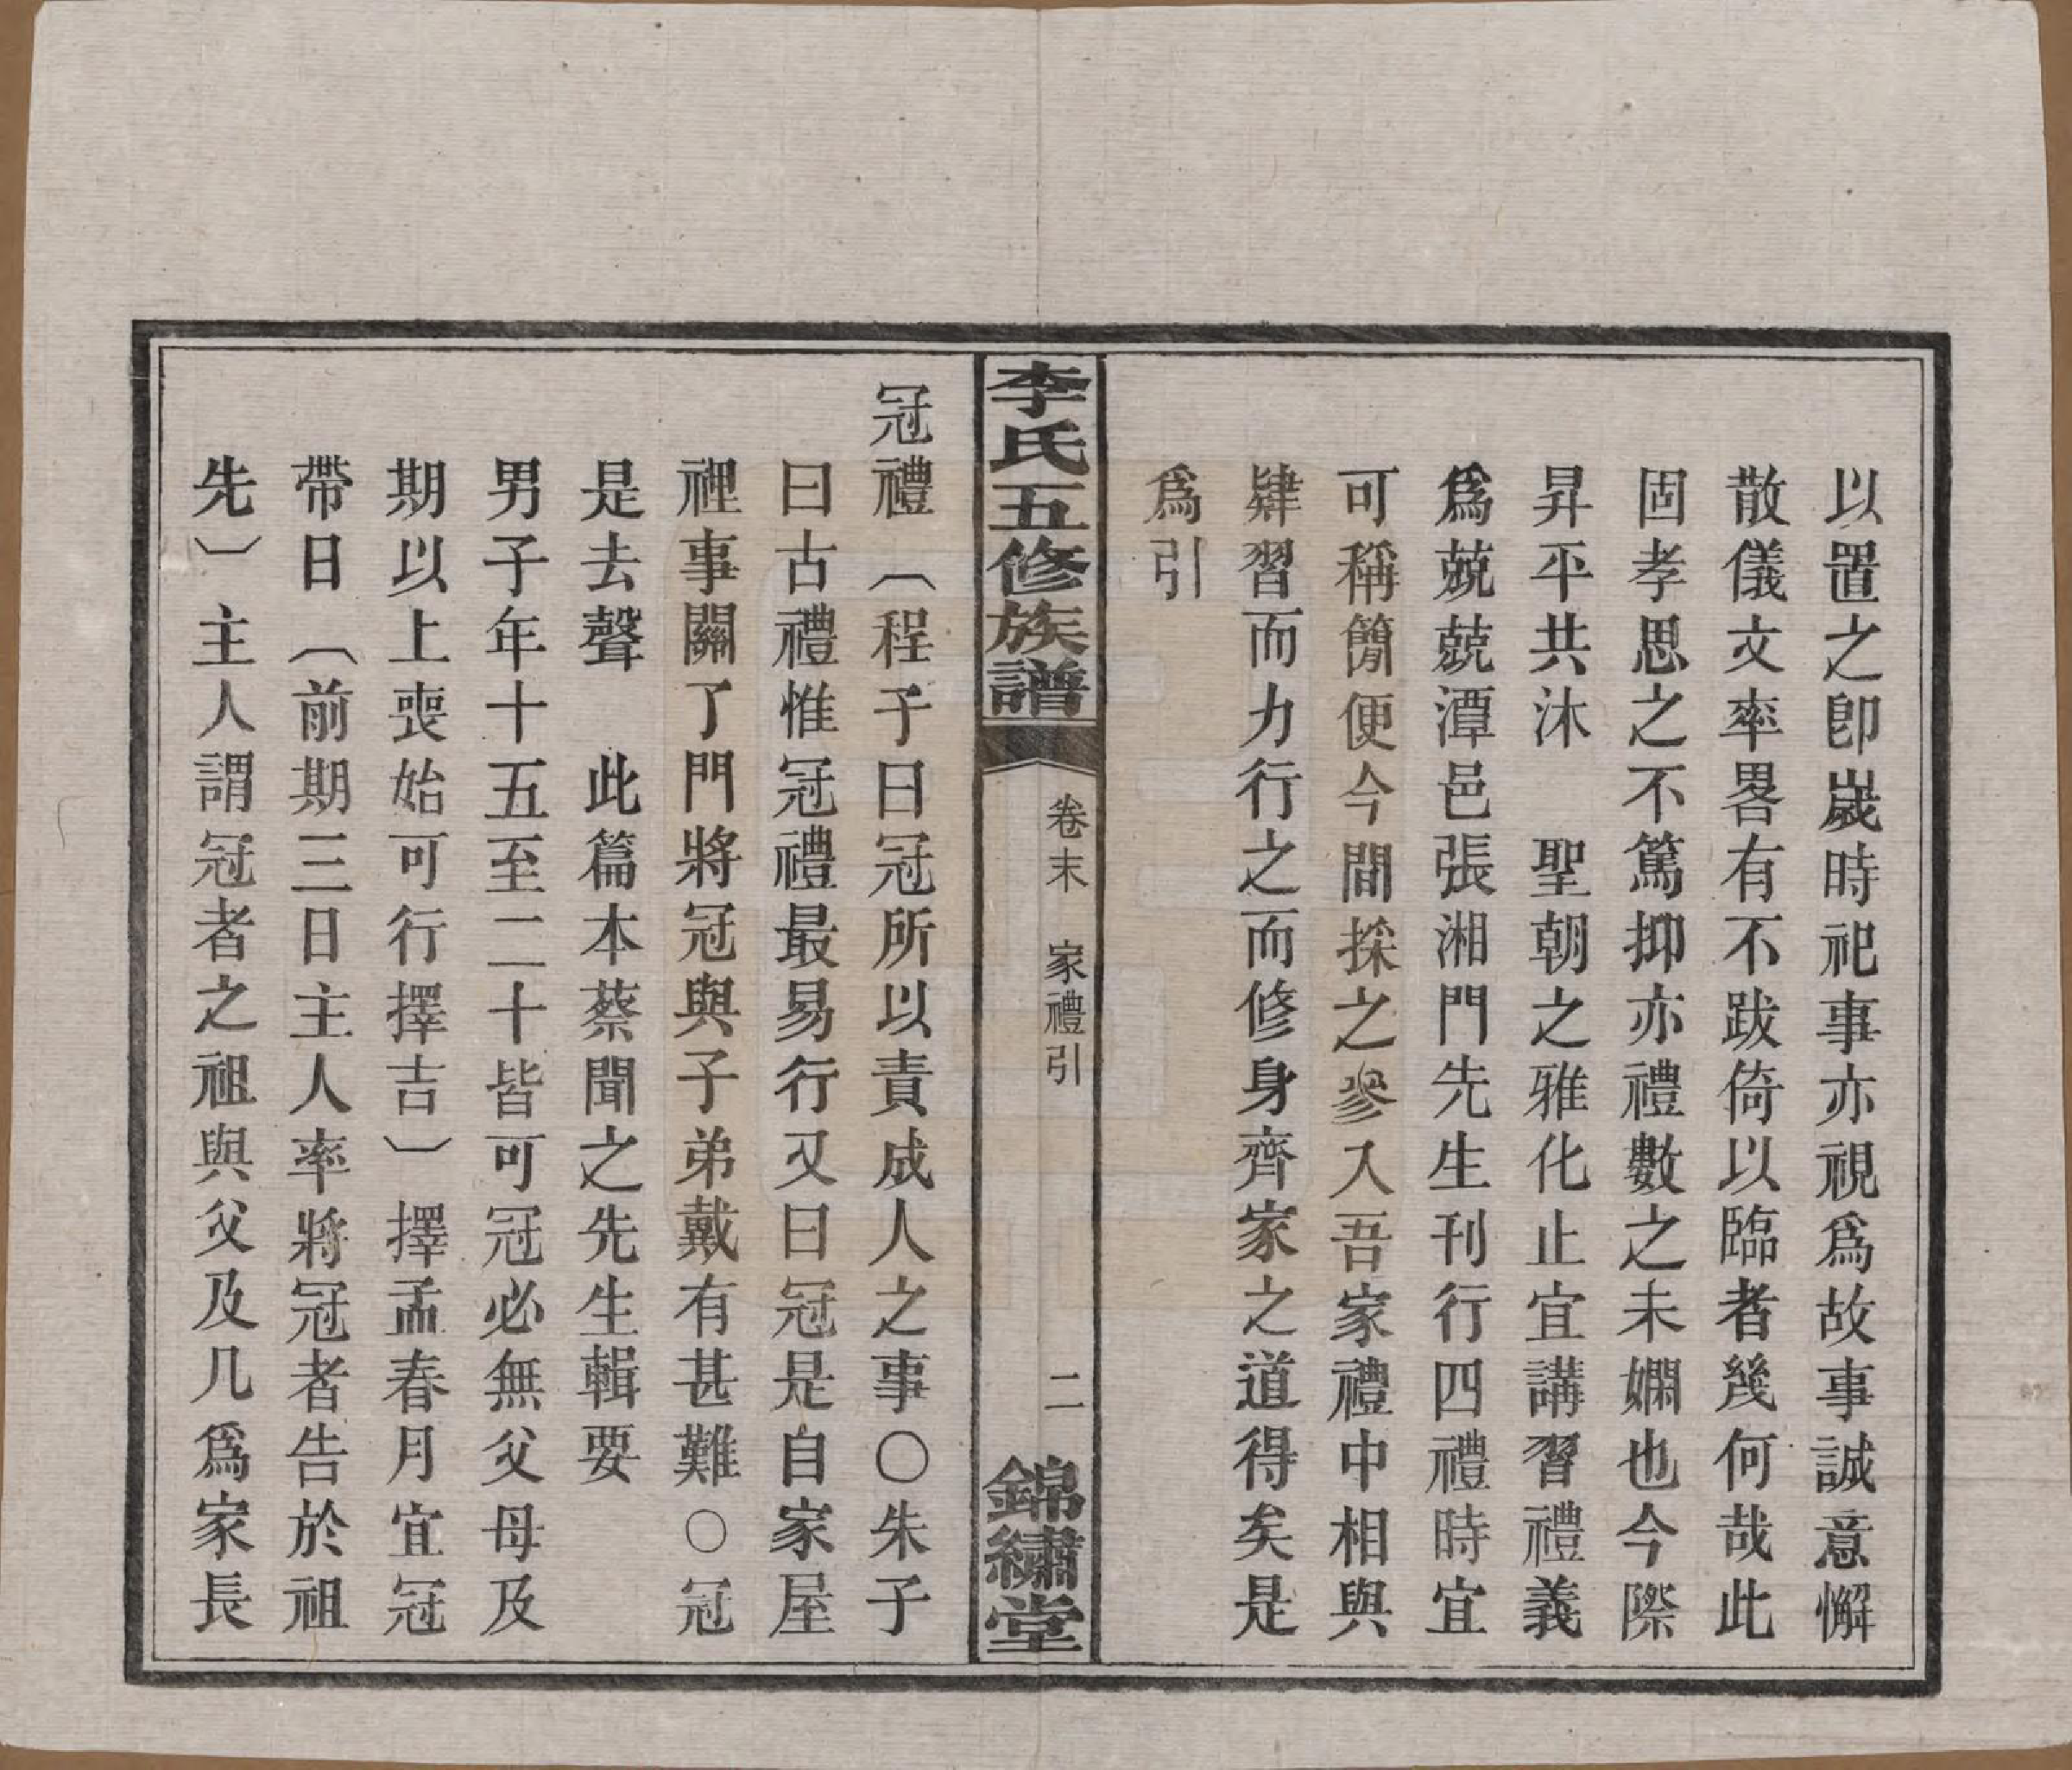 以置之卽歲時祀事亦視爲故事誠意懈
散儀文率畧有不跋倚以臨者幾何哉此
固孝思之不篤抑亦禮數之未嫻也今際
昇平共沐　聖朝之雅化止宜講習禮義
爲兢兢潭邑張湘門先生刊行四禮時宜
可稱簡便今間採之參入吾家禮中相與
肄習而力行之而修身齊家之道得矣是
爲引
李氏五修族譜
卷末　家禮引
二
錦繡堂
冠禮〔程子曰冠所以責成人之事〇朱子
曰古禮惟冠禮最易行又曰冠是自家屋
裡事關了門將冠與子弟戴有甚難〇冠
是去聲　此篇本蔡聞之先生輯要
男子年十五至二十皆可冠必無父母及
期以上喪始可行擇吉〕擇孟春月宜冠
帶日〔前期三日主人率將冠者告於祖
先〕主人謂冠者之祖與父及凡爲家長